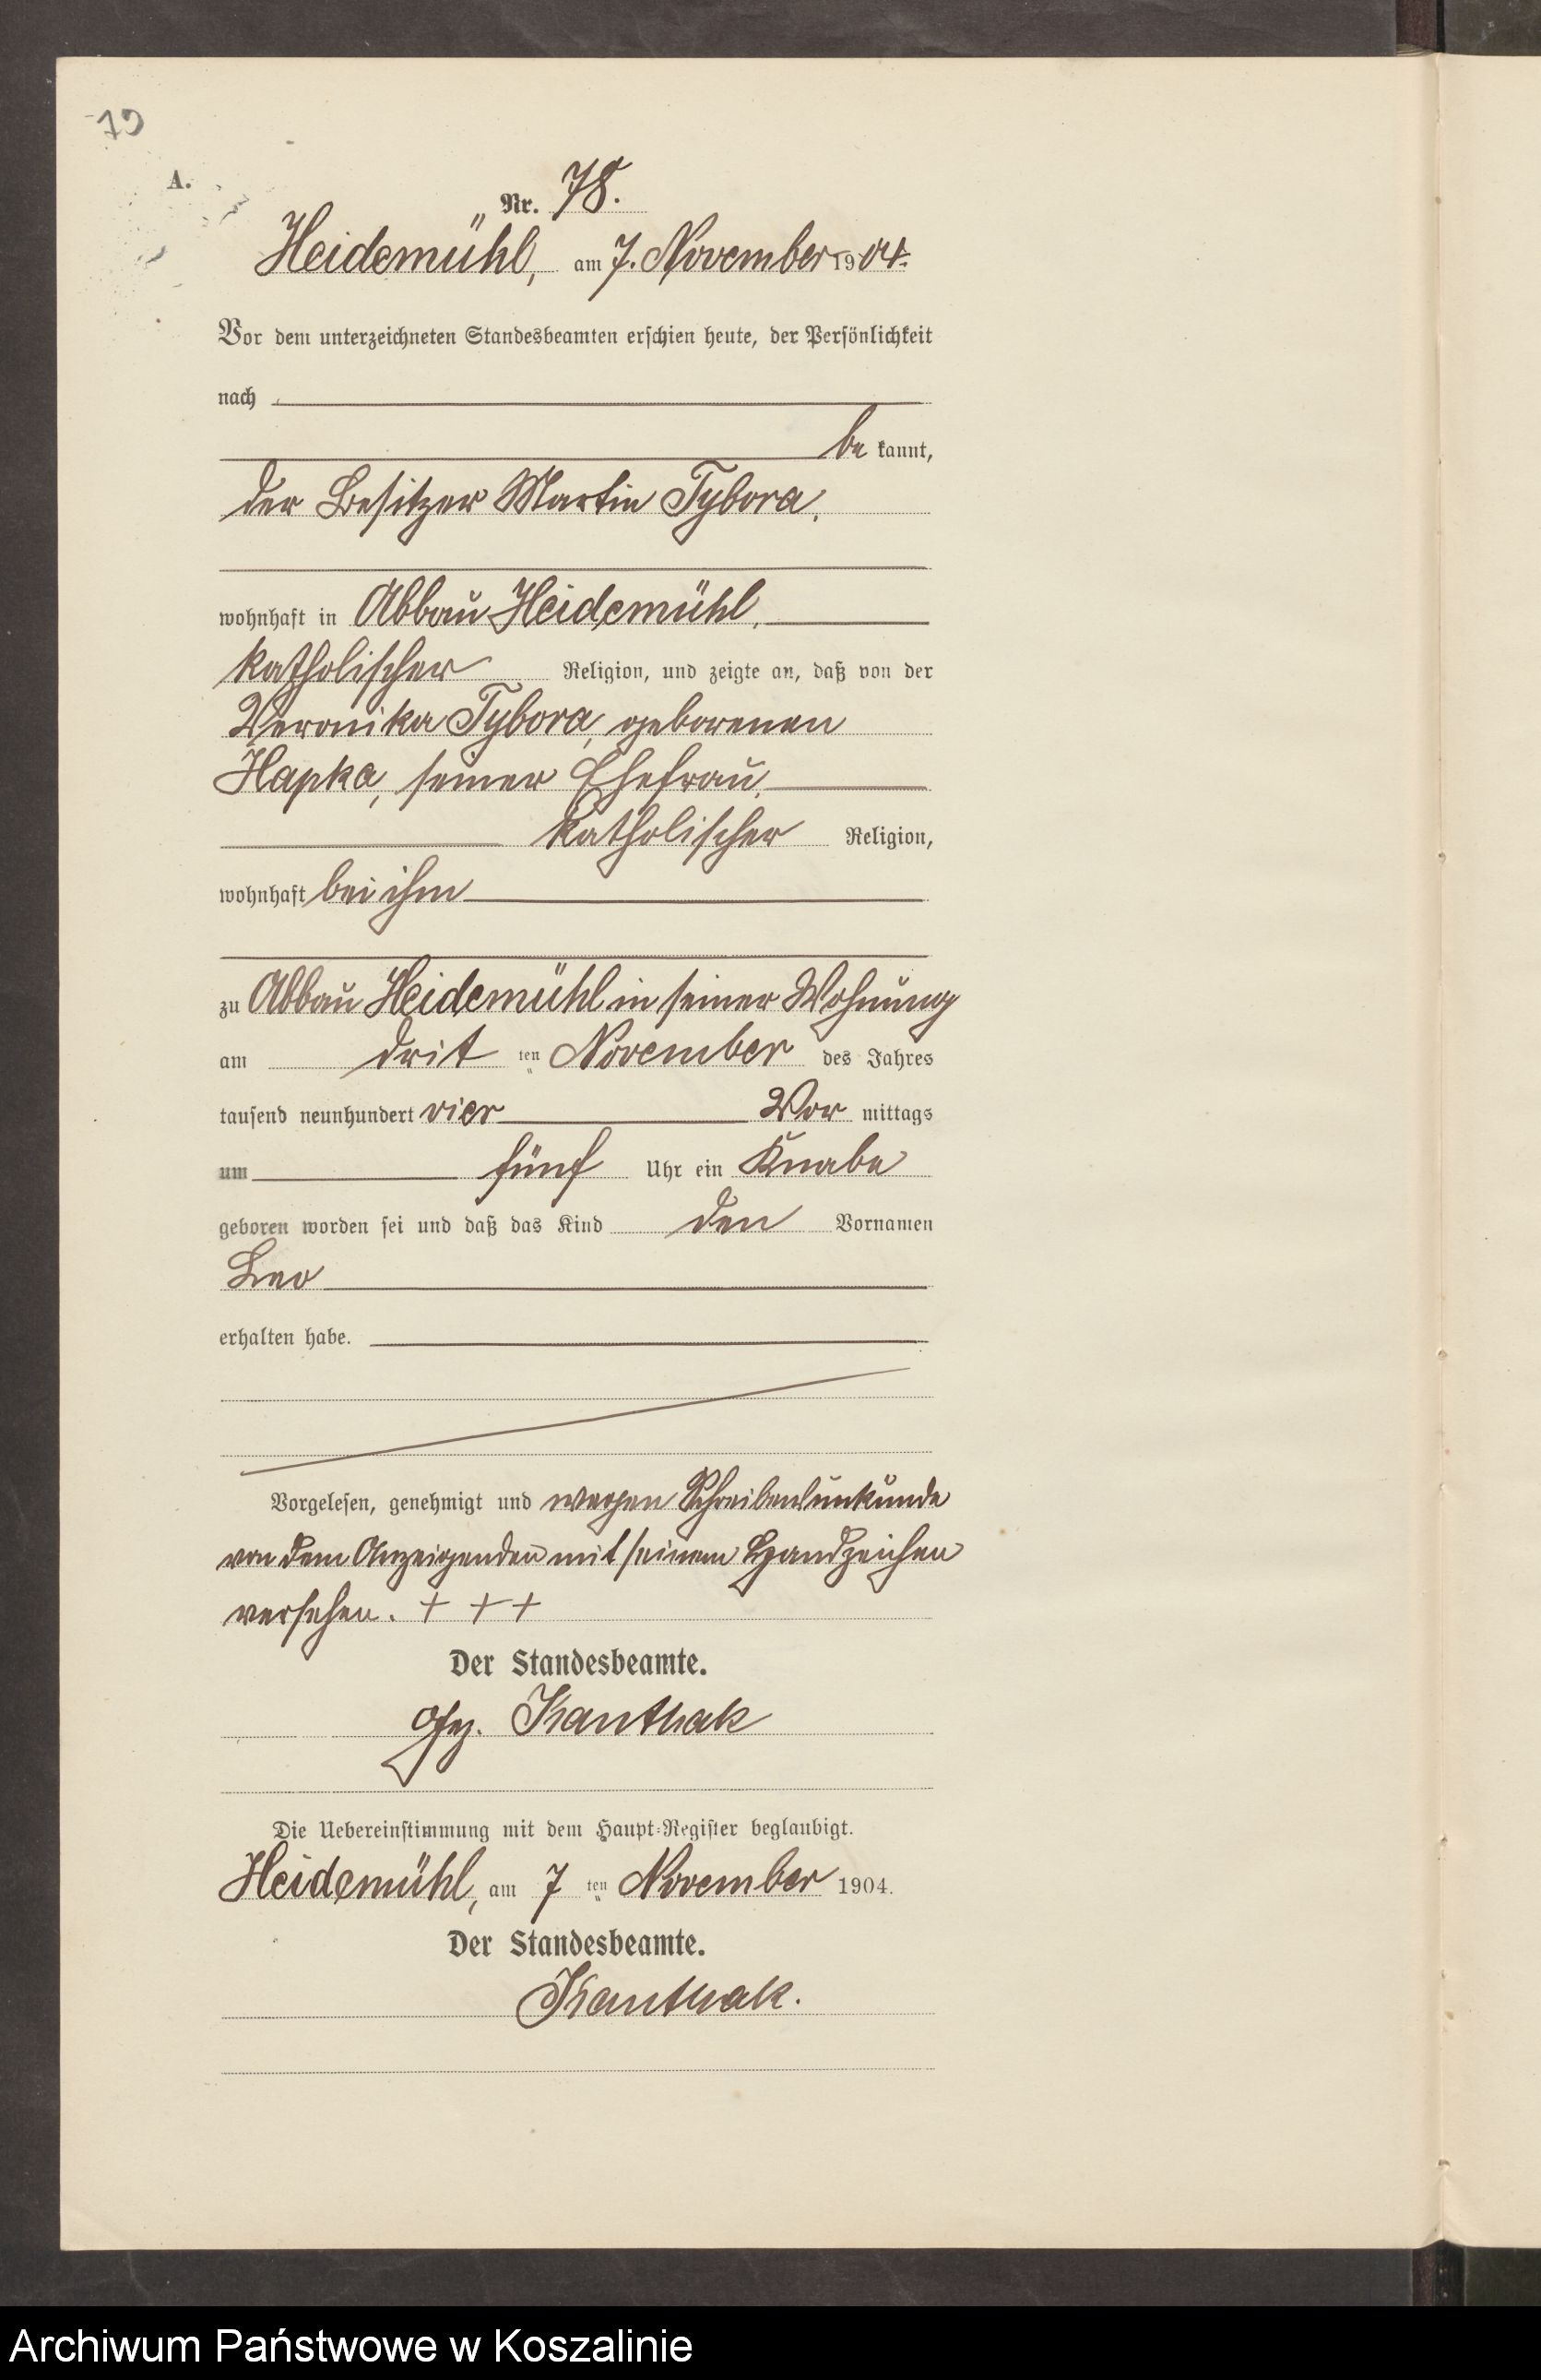 79
A.
Nr. 78.
Heidemühl, am 7. November 1904.
Vor dem unterzeichneten Standesbeamten erschien heute, der Persönlichkeit
nach
be kannt,
der Besitzer Martin Tybora,
wohnhaft in Abbau Heidemühl,
katholischer Religion, und zeigte an, daß von der
Veronika Tybora, geborenen
Hapka, seiner Ehefrau,
katholischer Religion,
wohnhaft bei ihm
zu Abbau Heidemühl in seiner Wohnung
am dritten November des Jahres
tausend neunhundert vier Vor mittags
um fünf Uhr ein Knabe
geboren worden sei und daß das Kind den Vornamen
Leo
erhalten habe.
Vorgelesen, genehmigt und wegen Schreibensunkunde
von dem Anzeigenden mit seinem Handzeichen
versehen. + + +
Der Standesbeamte.
gez. Kanthak
Die Uebereinstimmung mit dem Haupt-Register beglaubigt.
Heidemühl, am 7 ten November 1904.
Der Standesbeamte.
Kanthak.
Archiwum Państwowe w Koszalinie